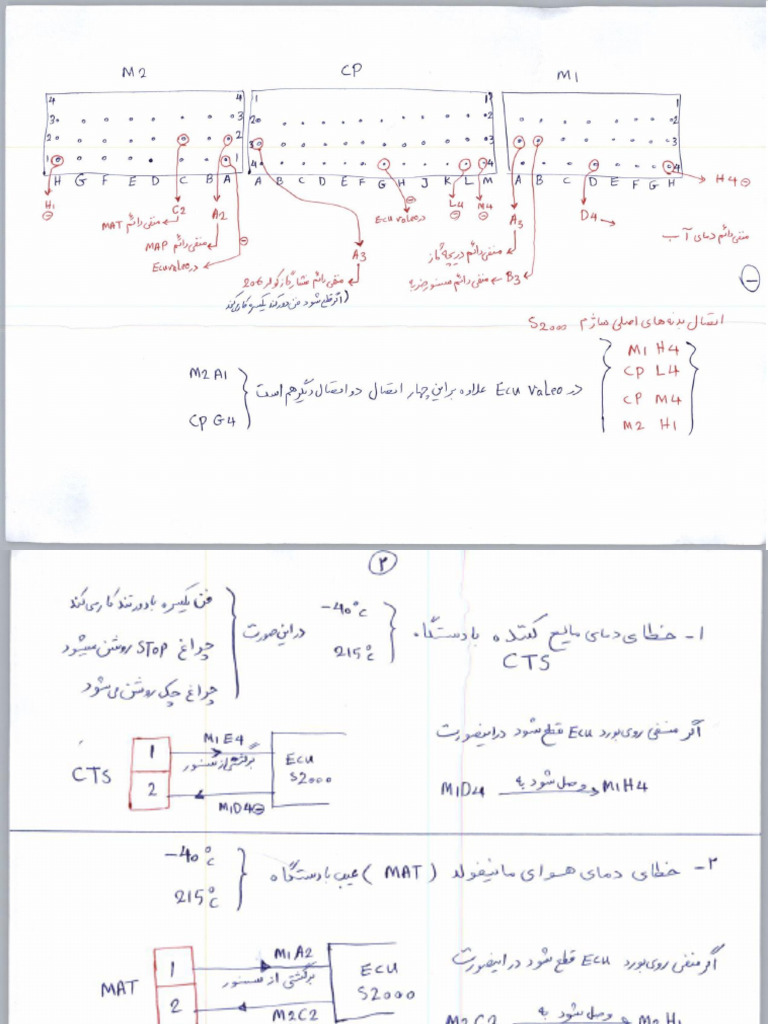 M2 CP M1
4 4 1 1 1 1
3 3 2 2 2
2 2 3 3 3
1 1 4 4 4
H G F E D C B A A B C D E F G H J K L M A B C D E F G H
H1 ⊖
C2
منفی دائم MAT
A2
منفی دائم MAP
در Ecu valeo
⊖
A3
منفی دائم فشار گاز کولر 206
(اگر قطع شود فن دور کند یکسره کار می کند
⊖
در Ecu valeo
L4 ⊖
M4 ⊖
A3
منفی دائم دریچه گاز
B3 منفی دائم سنسور ضربه
D4
منفی دائم دمای آب
H4 ⊖
⊖
اتصال بدنه های اصلی ساژم S2000
M1 H4
CP L4
CP M4
M2 H1
در Ecu valeo علاوه بر این چهار اتصال دو اتصال دیگر هم است
M2 A1
CP G4
۲
۱- خطای دمای مایع خنک کننده با دستگاه
CTS
-40°c
215°c
در این صورت
فن یکسره با دور تند کار می کند
چراغ STOP روشن میشود
چراغ چک روشن می شود
اگر منفی روی بورد Ecu قطع شود در اینصورت
M1D4 وصل شود به M1H4
CTS
1
2
M1E4
برگشتی از سنسور
M1D4⊖
Ecu
S2000
۲- خطای دمای هوای مانیفولد (MAT) عیب با دستگاه
-40°c
215°c
اگر منفی روی بورد Ecu قطع شود در اینصورت
M2C2 وصل شود به M2H1
MAT
1
2
M1A2
برگشتی از سنسور
M2C2
Ecu
S2000